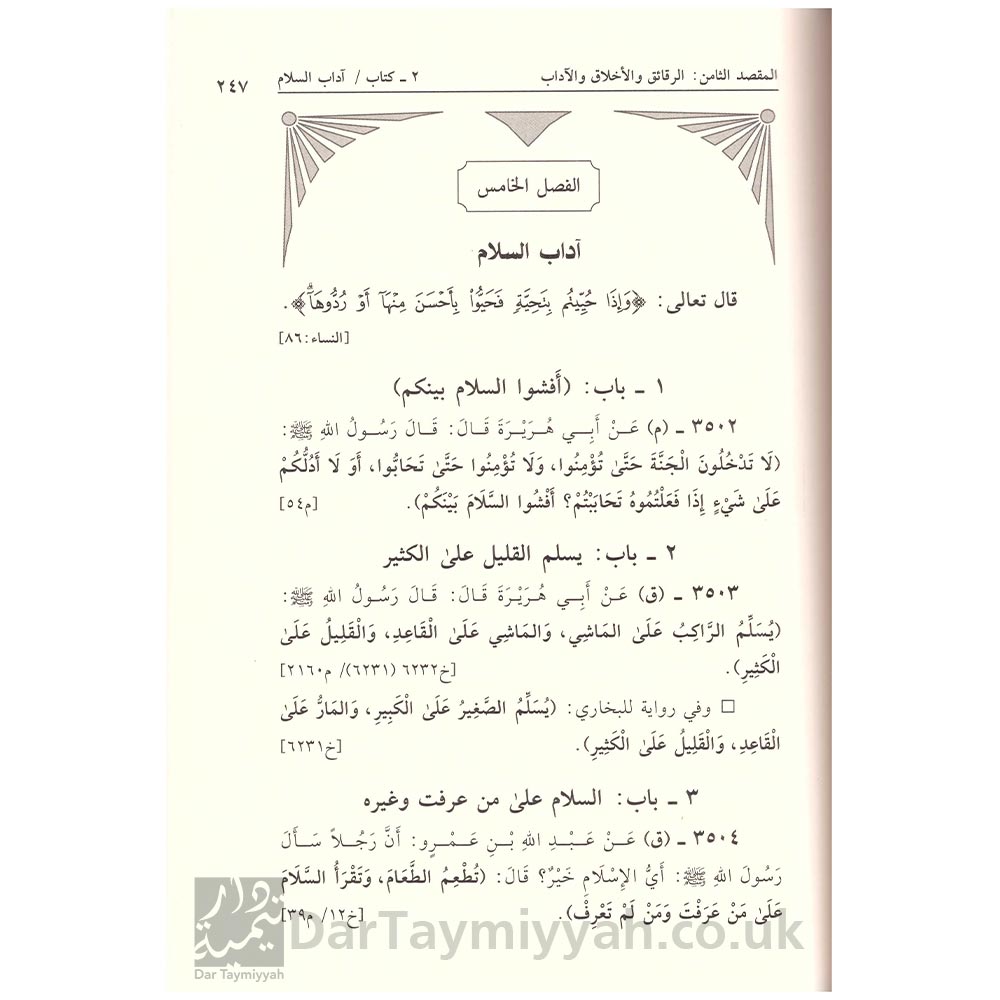 المقصد الثامن: الرقائق والأخلاق والآداب ٢ ـ كتاب / آداب السلام ٢٤٧
الفصل الخامس
آداب السلام
قال تعالى: ﴿وَإِذَا حُيِّينُم بِتَحِيَّةٍ فَحَيُّواْ بِأَحْسَنَ مِنْهَآ أَوْ رُدُّوهَآ﴾.
[النساء: ٨٦]
١ ـ باب: (أَفشوا السلام بينكم)
٣٥٠٢ ـ (م) عَنْ أَبِي هُرَيْرَةَ قَالَ: قَالَ رَسُولُ اللهِ ﷺ:
(لَا تَدْخُلُونَ الْجَنَّةَ حَتَّىٰ تُؤْمِنُوا، وَلَا تُؤْمِنُوا حَتَّىٰ تَحَابُّوا، أَوَ لَا أَدُلُّكُمْ
عَلَىٰ شَيْءٍ إِذَا فَعَلْتُمُوهُ تَحَابَبْتُمْ؟ أَفْشُوا السَّلَامَ بَيْنَكُمْ). [م٥٤]
٢ ـ باب: يسلم القليل علىٰ الكثير
٣٥٠٣ ـ (ق) عَنْ أَبِي هُرَيْرَةَ قَالَ: قَالَ رَسُولُ اللهِ ﷺ:
(يُسَلِّمُ الرَّاكِبُ عَلَىٰ المَاشِي، وَالمَاشِي عَلَىٰ الْقَاعِدِ، وَالْقَلِيلُ عَلَىٰ
الْكَثِيرِ). [خ٦٢٣٢ (٦٢٣١)/ م٢١٦٠]
□ وفي رواية للبخاري: (يُسَلِّمُ الصَّغِيرُ عَلَىٰ الْكَبِيرِ، وَالمَارُّ عَلَىٰ
الْقَاعِدِ، وَالْقَلِيلُ عَلَىٰ الْكَثِيرِ). [خ٦٢٣١]
٣ ـ باب: السلام علىٰ من عرفت وغيره
٣٥٠٤ ـ (ق) عَنْ عَبْدِ اللهِ بْنِ عَمْرٍو: أَنَّ رَجُلاً سَأَلَ
رَسُولَ اللهِ ﷺ: أَيُّ الإِسْلَامِ خَيْرٌ؟ قَالَ: (تُطْعِمُ الطَّعَامَ، وَتَقْرَأُ السَّلَامَ
عَلَىٰ مَنْ عَرَفْتَ وَمَنْ لَمْ تَعْرِفْ). [خ١٢/ م٣٩]
دار تيمية
Dar Taymiyyah
DarTaymiyyah.co.uk